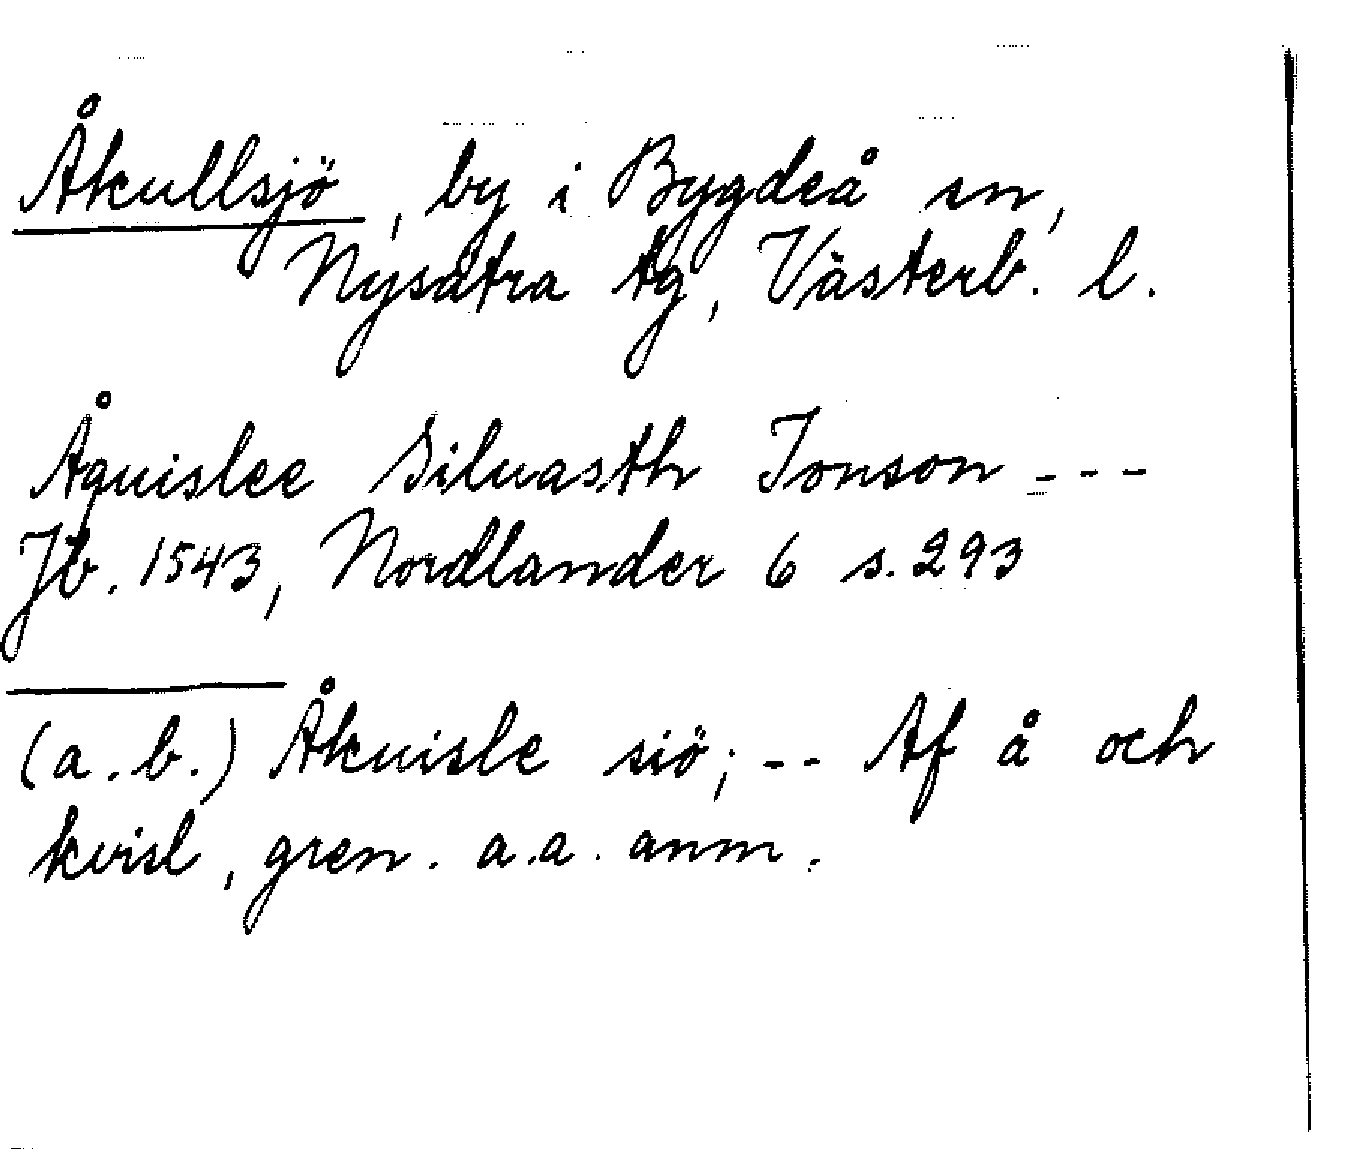 Åkullsjö, by i Bygdeå sn,
Nysätra tg, Västerb. l.
Åquislee Siluasth Jonson ---
Jb. 1543, Nordlander 6 s. 293
(a. b.) Åkuisle siö; -- Af å och
kvisl, gren. a.a. anm.